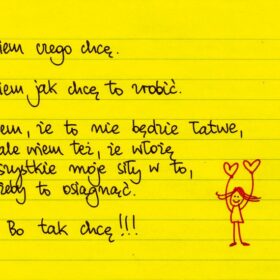 iem czego chcę.
iem jak chcę to zrobić.
em, że to nie będzie łatwe,
ale wiem też, że włożę
szystkie moje siły w to,
żeby to osiągnąć.
Bo tak chcę!!!